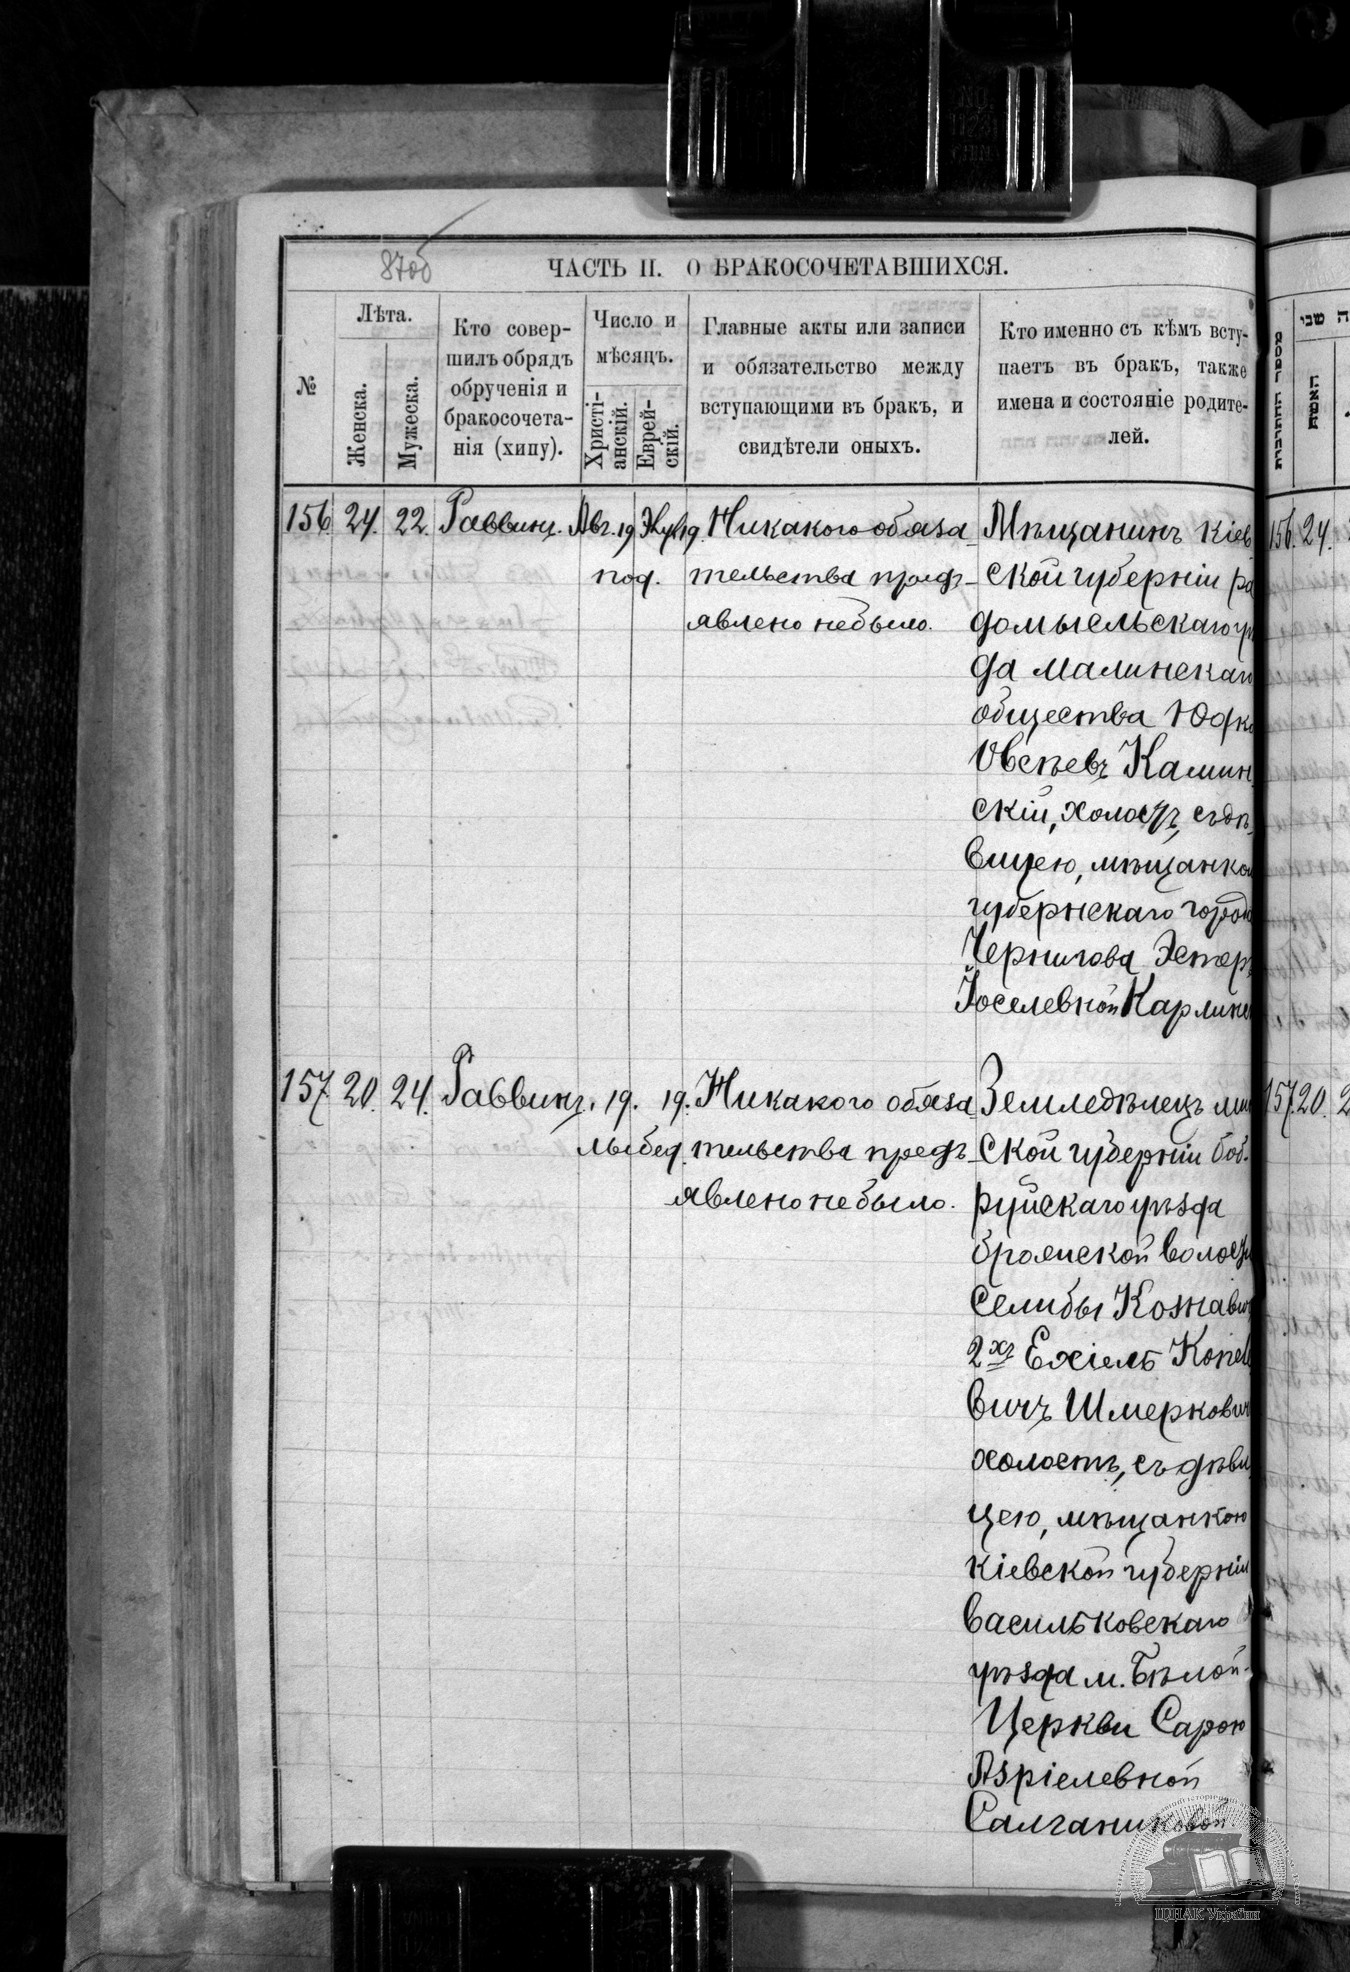 87об
ЧАСТЬ II. О БРАКОСОЧЕТАВШИХСЯ.
№
Лѣта.
Женска.
Мужеска.
Кто совер-
шилъ обрядъ
обрученія и
бракосочета-
нія (хипу).
Число и
мѣсяцъ.
Христі-
анскій.
Еврей-
скій.
Главные акты или записи
и обязательство между
вступающими въ бракъ, и
свидѣтели оныхъ.
Кто именно съ кѣмъ всту-
паетъ въ бракъ, также
имена и состояніе родите-
лей.
156. 24. 22. Раввинъ. Авг. 19 19. Никакого обяза
под. тельства предъ-
явлено небыло.
Мѣщанинъ Кіев
ской губерніи Ра
домысльскаго
да Малинскаго
общества
Овсѣевъ Камин
скій, холостъ, съ дѣ-
вицею, мѣщанкой
губернскаго города
Чернигова Эстер
Іоселевной Карлинс
157. 20. 24. Раввинъ. 19. 19. Никакого обяза
лыбед. тельства предъ-
явлено не было.
Земледѣлецъ мин
ской губерніи боб-
руйскаго уѣзда
волос
селибы Кознавич
2хъ Ехіель Копел
вичъ Шмеркович
холостъ, съ дѣви
цею, мѣщанкою
Кіевской губерніи
Васильковскаго
уѣзда м. Бѣлой-
Церкви Сарою
Азріелевной
Салганиковой
156. 24.
157. 20. 2
האשה
שני
ЦДІАК України